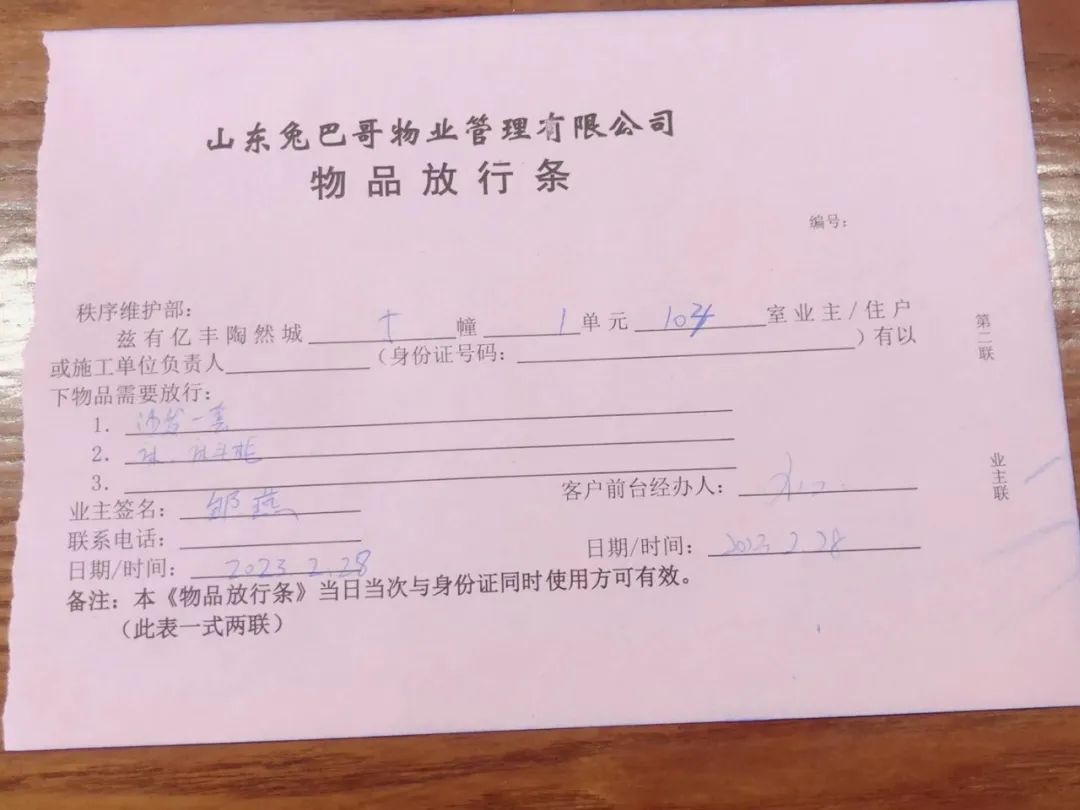 山东兔巴哥物业管理有限公司
物品放行条
编号：
秩序维护部：
兹有亿丰陶然城 十 幢 1 单元 104 室业主/住户
或施工单位负责人 （身份证号码： ）有以
下物品需要放行：
1. 沙发一套
2. 床、床头柜
3.
业主签名： 邹燕
客户前台经办人：
联系电话：
日期/时间： 2023 2.28
日期/时间： 2023 2.28
备注：本《物品放行条》当日当次与身份证同时使用方可有效。
（此表一式两联）
第二联
业主联